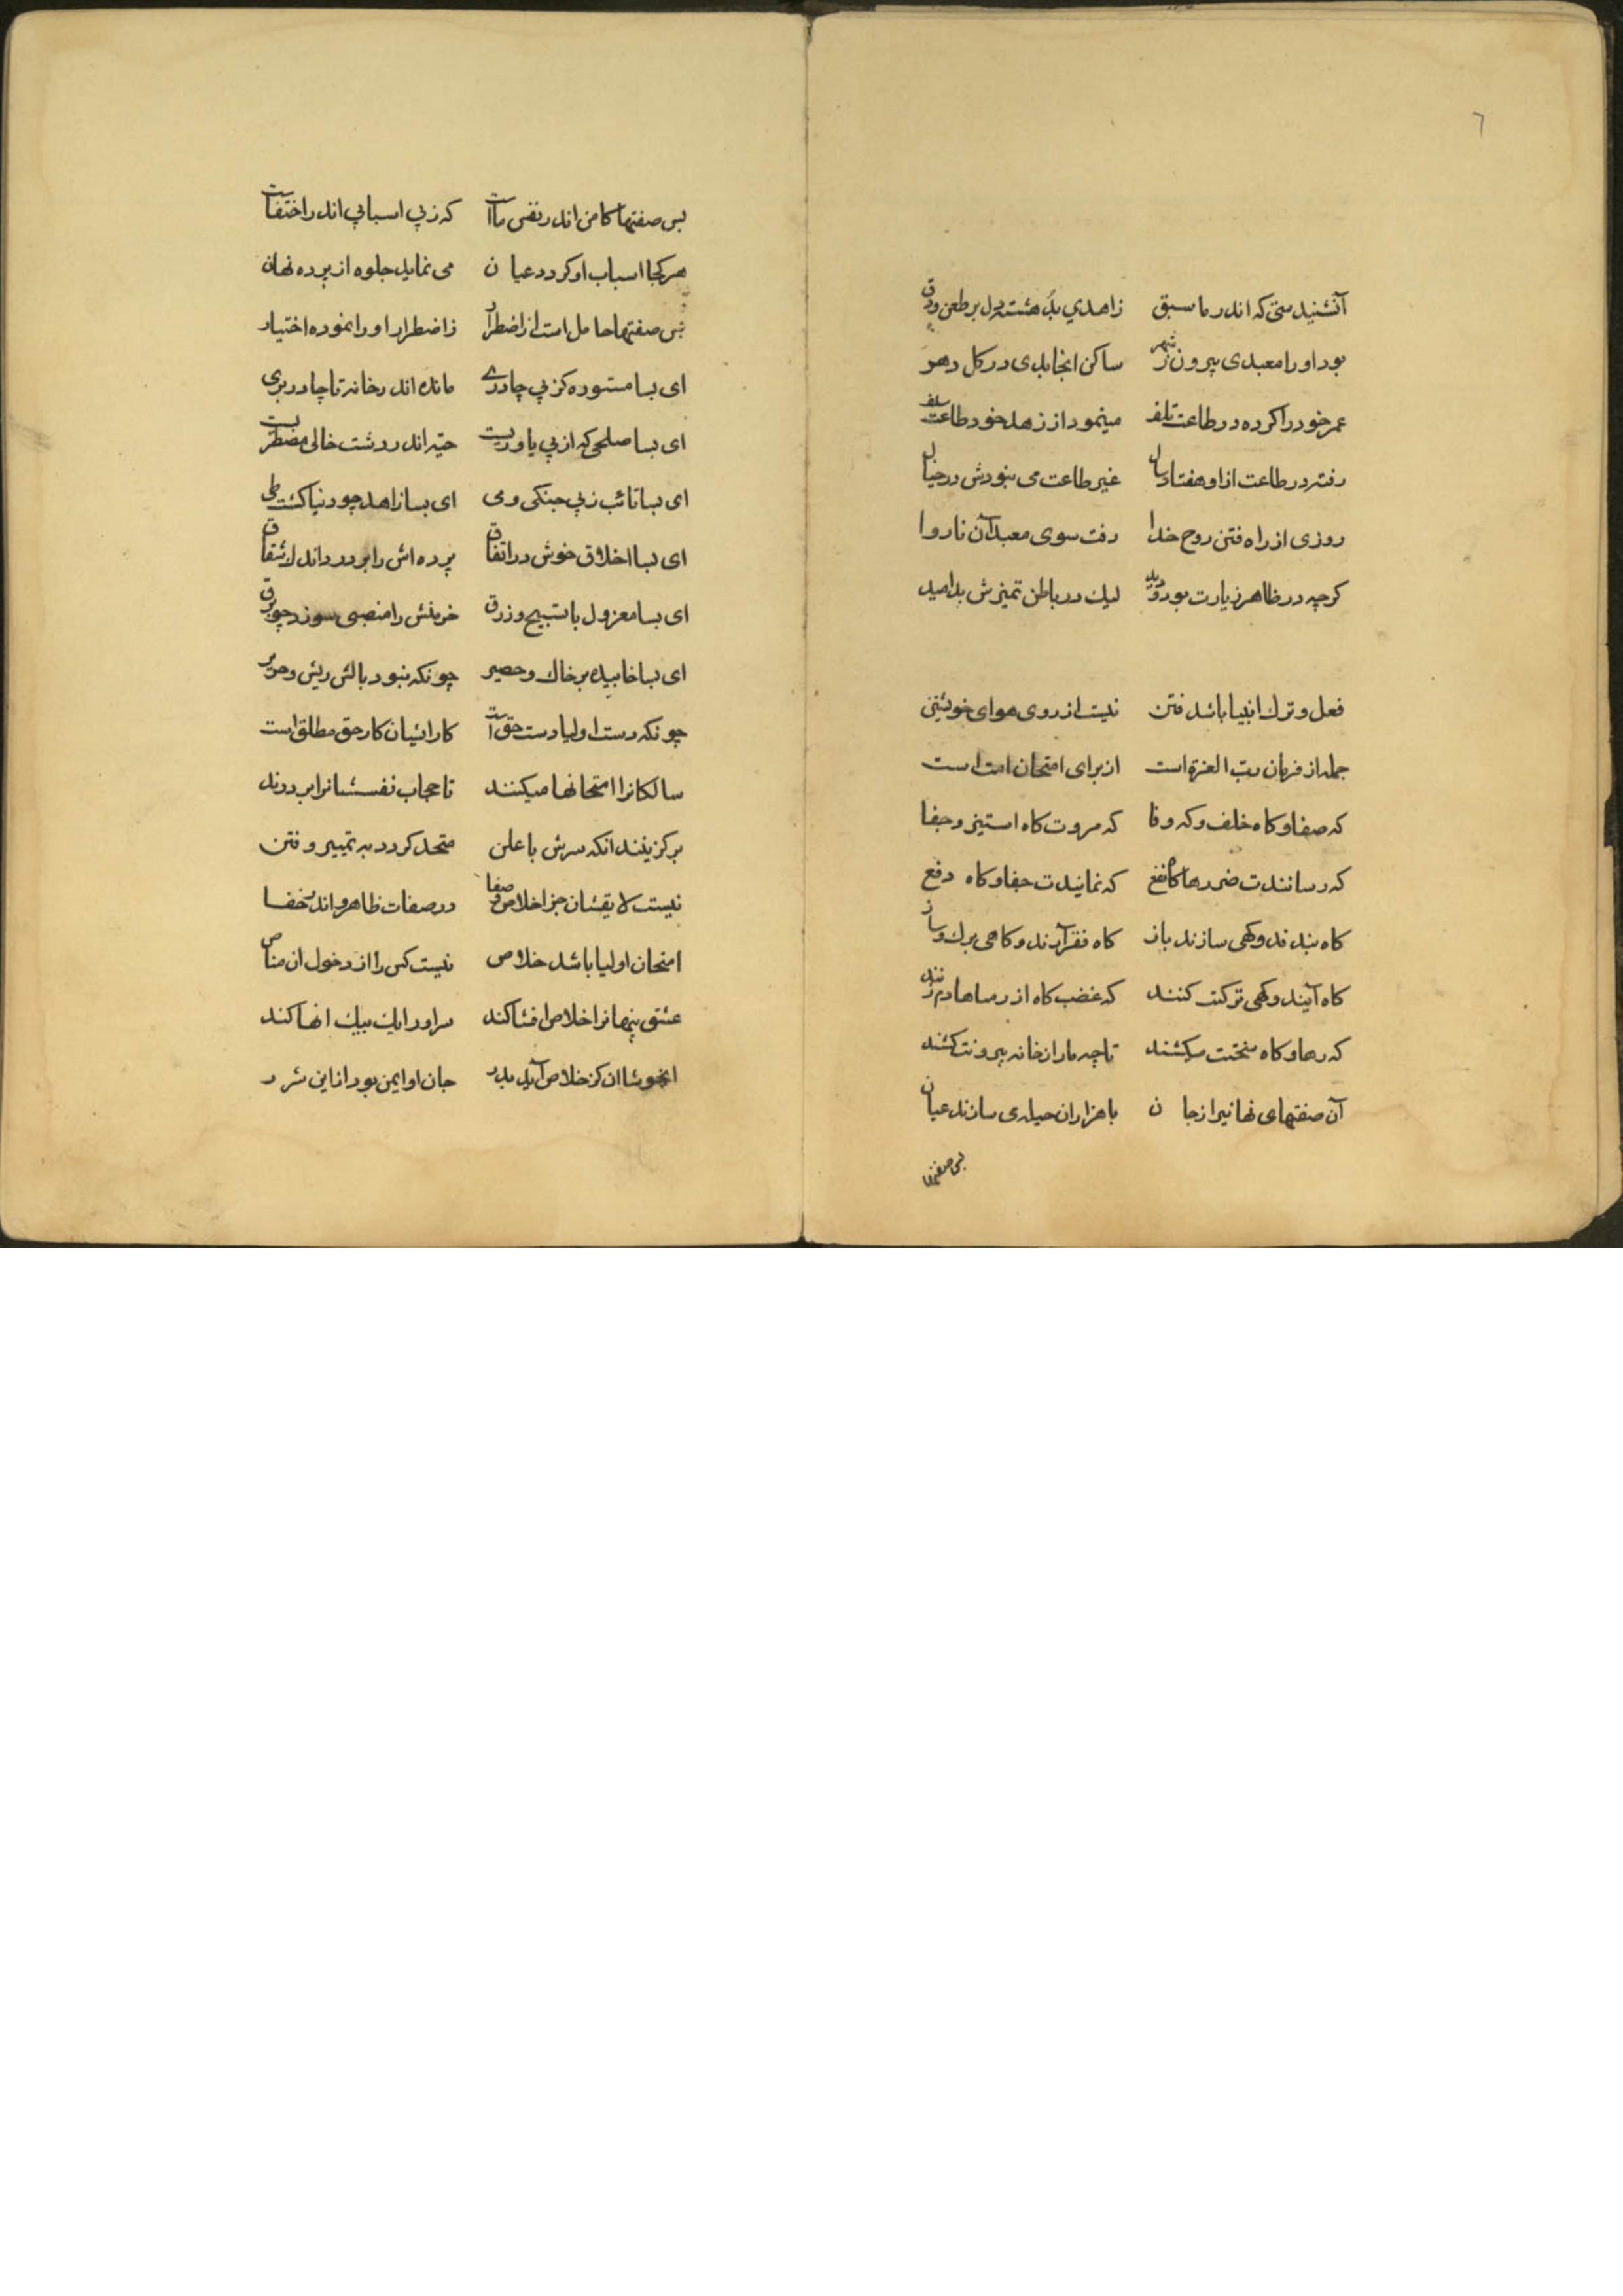 ٦
آنشنیدستی که اندر ما سبق زاهدي بد هشته دل بر طعن و دق
بود او را معبدی بیرون ز شهر ساکن انجا بدی در کل دهر
عمر خود را کرده در طاعت تلف مینمود از زهد خود طاعت سلف
رفته در طاعت از او هفتاد سال غیر طاعت می نبودش در خیال
روزی از راه فتن روح خدا رفت سوی معبد آن ناروا
کرچه در ظاهر زیارت بود و دید لیك در باطن تمیزش بد امید
فعل و ترك انبیا باشد فتن نیست از روی هوای خویشتن
جمله از فرمان رب العزة است از برای امتحان امت است
که صفا و کاه خلف و که وفا که مروت کاه استیز و جفا
که رسانندت ضررها کاه نفع که نمایندت جفا و کاه دفع
کاه بندند و کهی سازند باز کاه فقر آرند و کاهی برك و ساز
کاه آیند و کهی ترکت کنند که غضب کاه از رضاها دم زنند
که رها و کاه سختت میکشند تا چه مار از خانه بیرونت کشند
آن صفتهای نهانیرا ز جان با هزاران حیله‌ی سازند عیان
بس صفتها
بس صفتها کامن اندر نفس ماست که ز بی اسبابی اندر اختفاست
هر کجا اسباب او کردد عیان می نماید جلوه از پرده نهان
بس صفتها حامل است از اضطرار ز اضطرار او را نموده اختیار
ای بسا مستوره کز بی چادرے مانده اندر خانه تا چادر بری
ای بسا صلحی که از بی یاوریست اندر دشت خالی مضطریست
ای بسا تائب ز بی جنکی و می ای بسا زاهد چو دنیا کشت طی
ای بسا اخلاق خوش در اتفاق پرده اش را بر درد اندر شقاق
ای بسا معزول با تسبیح و زرق خرمنش را منصبی سوزد چو برق
ای بسا خابیده بر خاك و حصیر چونکه نبود بالش ریش و حریر
چونکه دست اولیا دست حق است کار ائیشان کار حق مطلق است
سالکانرا امتحانها میکنند تا حجاب نفسشانرا بر درند
بر کزینند انکه سرش با علن متحد کردد به تمییر و فتن
نیست لایقشان جز اخلاص و صفا در صفات ظاهر و اندر خفا
امتحان اولیا باشد خلاص نیست کس را از دخول ان مناص
عشق پنهانرا خلاص افشا کند سر او را یك بیك انها کند
ایخوشا ان کز خلاص آید بدر جان او ایمن بود از این شرر